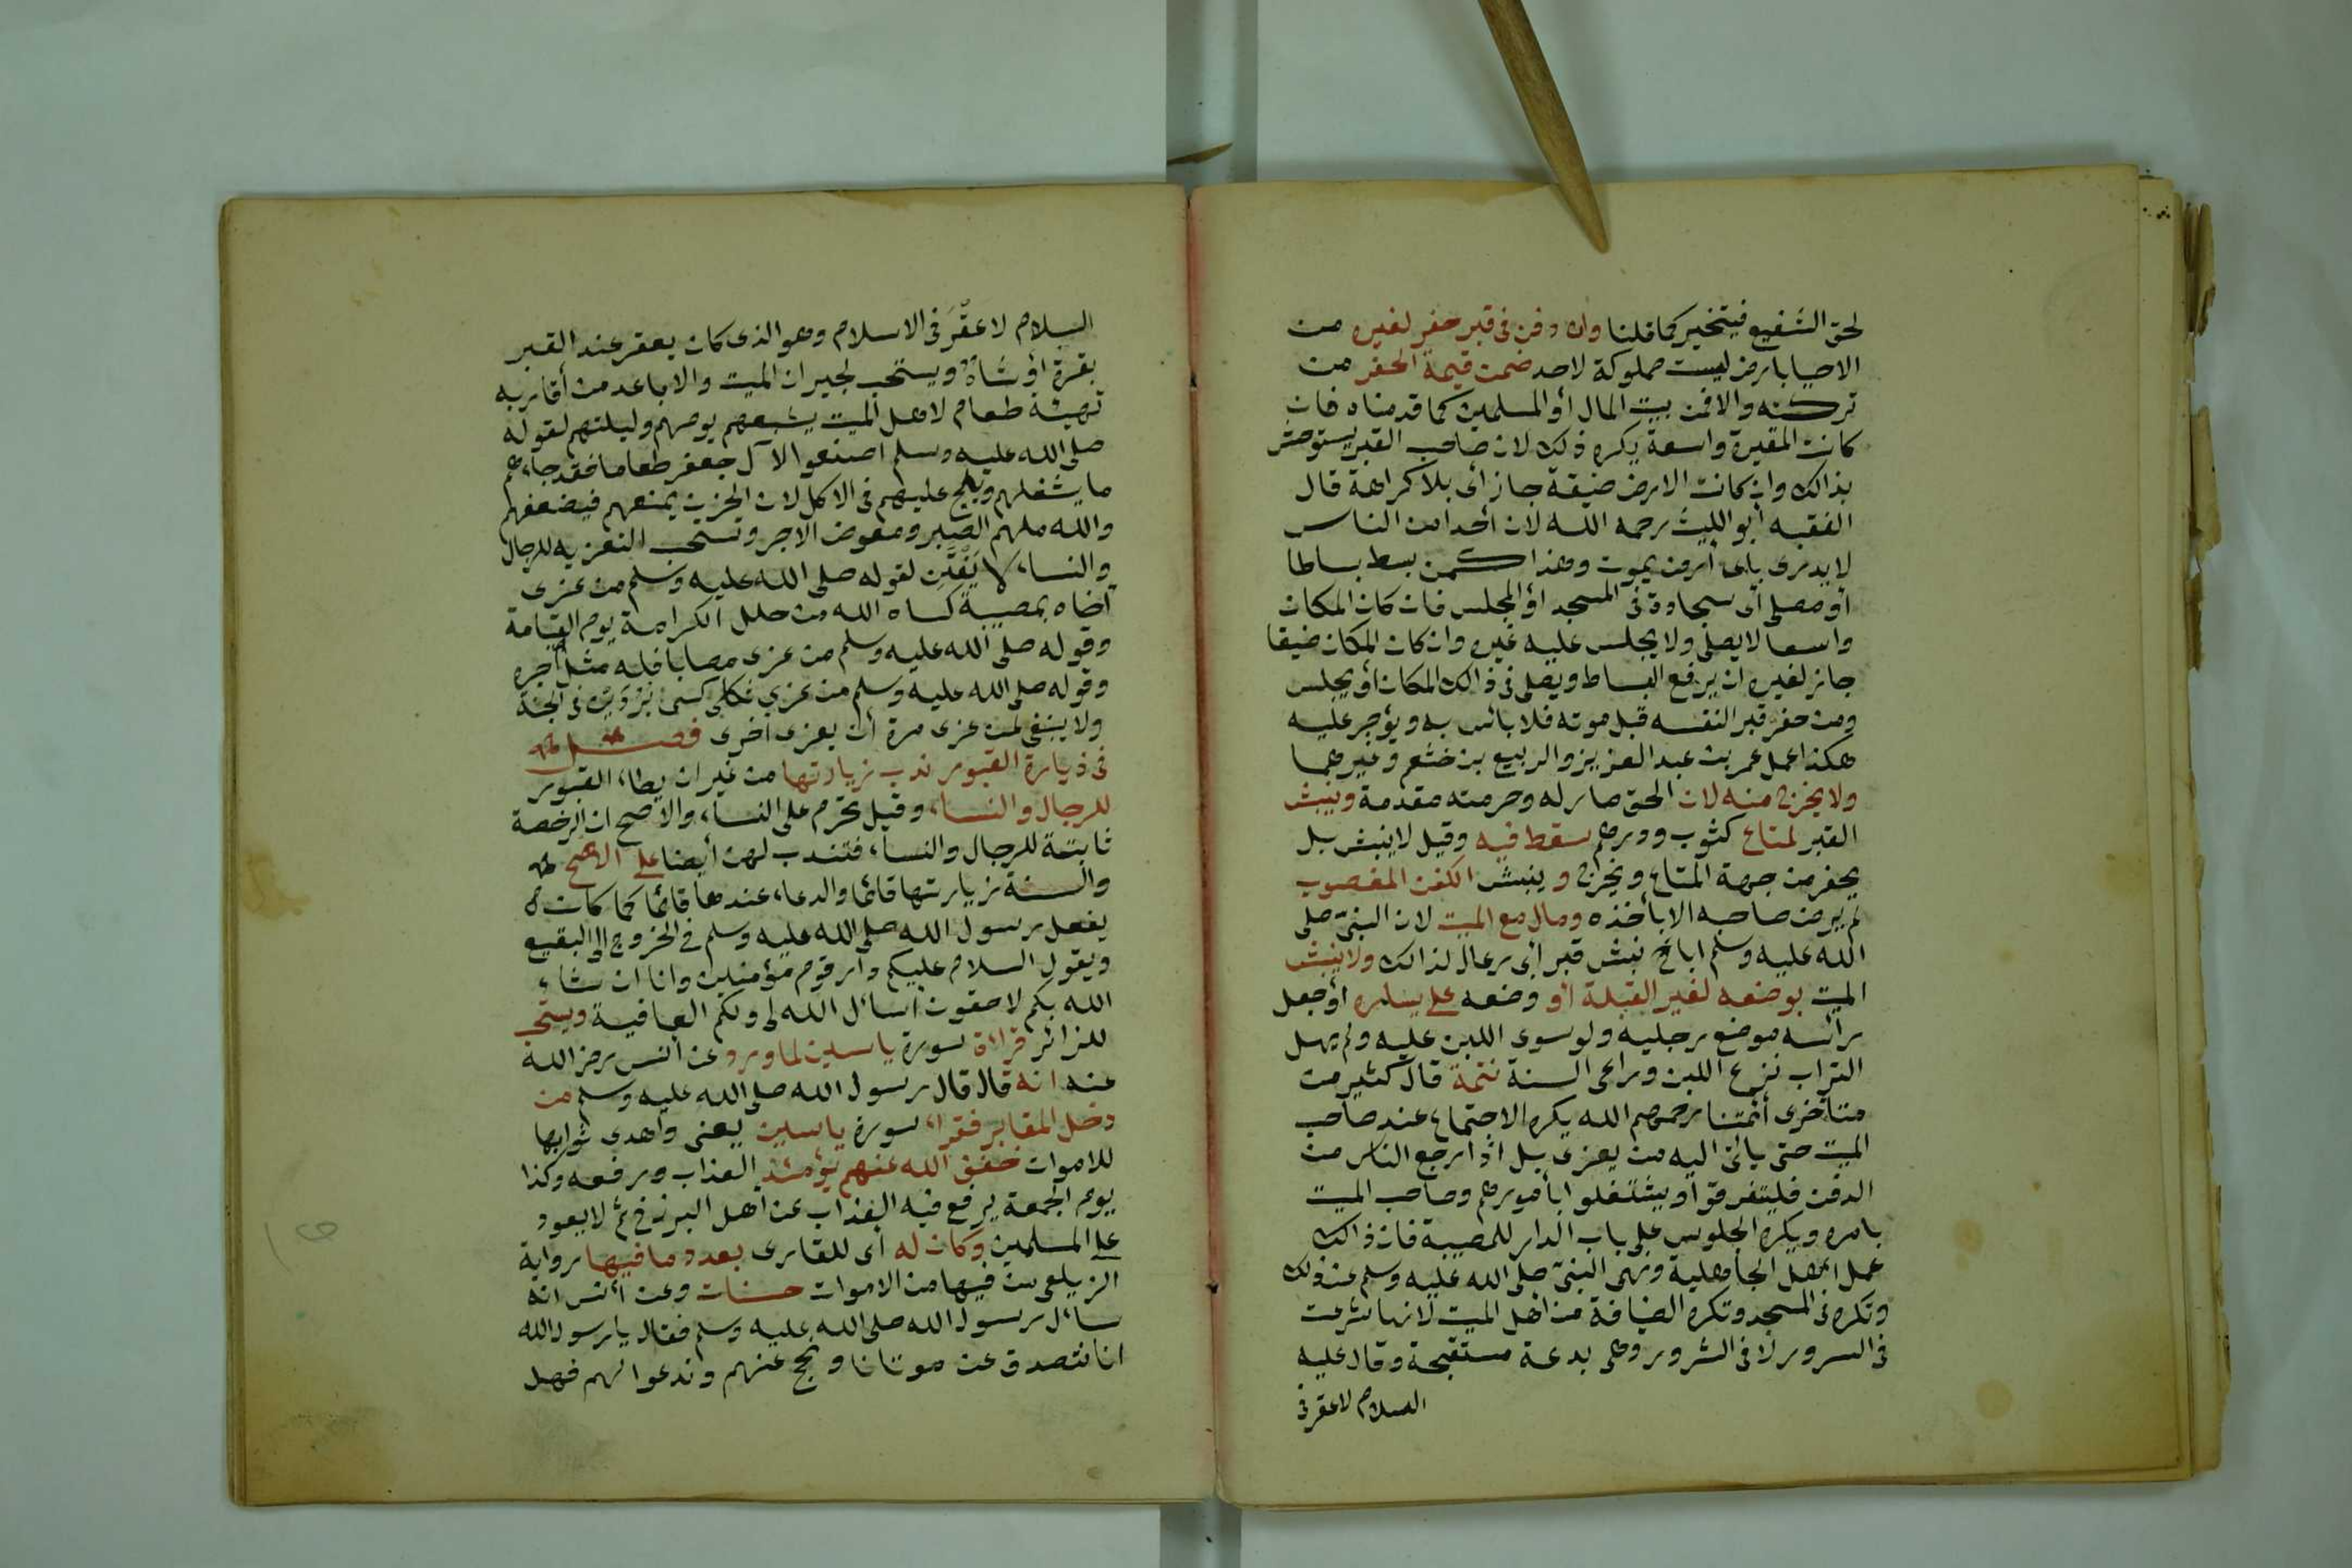 لحق الشفيع فيتخير كما قلنا وان دفن فى قبر حفر لغيره من
الاحيا بارض ليست مملوكة لاحد ضمن قيمة الحفر من
تركته والا فمن بيت المال أو المسلمين كما قدمناه فان
كانت المقبرة واسعة يكره ذلك لان صاحب القبر يستوحش
بذالك وان كانت الارض ضيقة جاز أى بلا كراهة قال
الفقيه أبو الليث رحمه الله لان أحدا من الناس
لا يدرى بأى أرض يموت وهذا كمن بسط بساطا
أو مصلى أى سجادة فى المسجد أو المجلس فان كان المكان
واسعا لا يصلى ولا يجلس عليه غيره وان كان المكان ضيقا
جاز لغيره ان يرفع البساط ويصلى فى ذالك المكان أو يجلس
ومن حفر قبر النفسه قبل موته فلا بائس به ويؤجر عليه
هكذا عمل عمر بن عبد العزيز والربيع بن خثعم وغيرهما
ولا يخرج منه لان الحق صار له وحرمته مقدمة وينبش
القبر لمتاع كثوب ودرهم سقط فيه وقيل لا ينبش بل
يحفر من جهة المتاع ويخرج وينبش الكفن المغصوب
لم يرض صاحبه الا بأخذه ومال مع الميت لان النبىّ صلى
الله عليه وسلم اباح نبش قبر أبى رعال لذالك ولا ينبش
الميت بوضعه لغير القبلة أو وضعه على يساره أو جعل
رائسه موضع رجليه ولو سوى اللبن عليه ولم يهل
التراب نزع اللبن وراعى السنة تتمة قال كثير من
متأخرى أئمتنا رحمهم الله يكره الاجتماع عند صاحب
الميت حتى يائتى اليه من يعزى بل اذا رجع الناس من
الدفن فليتفرقوا ويشتغلوا بأمورهم وصاحب الميت
بامره ويكره الجلوس على باب الدار للمصيبة فان ذالك
عمل اهل الجاهلية ونهى النبىّ صلى الله عليه وسلم عن ذلك
وتكره فى المسجد وتكره الضيافة من اهل الميت لانها شرعت
فى السرور لا فى الشرور وهى بدعة مستقبحة وقال عليه
السلام لا عقر فى
السلام لا عقْرَ فى الاسلام وهو الذى كان يعقر عند القبر
بقرة أو شاة ويستحب لجيران الميت والاباعد من أقاربه
تهيئة طعام لاهل الميت يشبعهم يومهم وليلتهم لقوله
صلى الله عليه وسلم اصنعوا لآل جعفر طعاما فقد جاءهم
ما يشغلهم ويلح عليهم فى الاكل لان الحزن يمنعهم فيضعفهم
والله ملهم الصبر ومعوض الاجر وتستحب التعزيه للرجال
والنساء لا يَفْتِنَّ لقوله صلى الله عليه وسلم من عزى
أخاه بمصيبة كساه الله من حلل الكرامة يوم القيامة
وقوله صلى الله عليه وسلم من عزى مصابا فله مثل أجره
وقوله صلى الله عليه وسلم من عزى ثكلى كسى بردين فى الجنة
ولا ينبغى لمن عزى مرة أن يعزى أخرى فصل
فى زيارة القبور ندب زيارتها من غير ان يطاء القبور
للرجال والنساء وقيل تحرم على النساء والاصح ان الرخصة
ثابتة للرجال والنساء فتندب لهن أيضا على الاصح
والسنة زيارتها قائما والدعاء عندها قائما كما كان
يفعل رسول الله صلى الله عليه وسلم فى الخروج الى البقيع
ويقول السلام عليكم دار قوم مؤمنين وانا ان شاء
الله بكم لاحقون أسائل الله لى ولكم العافية ويستحب
للزائر قراءة سورة ياسين لما ورد عن أنس رضى الله
عنه انه قال قال رسول الله صلى الله عليه وسلم من
دخل المقابر فقراء سورة ياسين يعنى واهدى ثوابها
للاموات خفف الله عنهم يومئذ العذاب ورفعه وكذا
يوم الجمعة يرفع فيه العذاب عن أهل البرزخ ثم لا يعود
على المسلمين وكان له أى للقارى بعدد ما فيها رواية
الزيلعى من فيها من الاموات حسنات وعن أنس انه
سائل رسول الله صلى الله عليه وسلم فقال يا رسول الله
انا نتصدق عن موتانا ونحج عنهم وندعوا لهم فهل